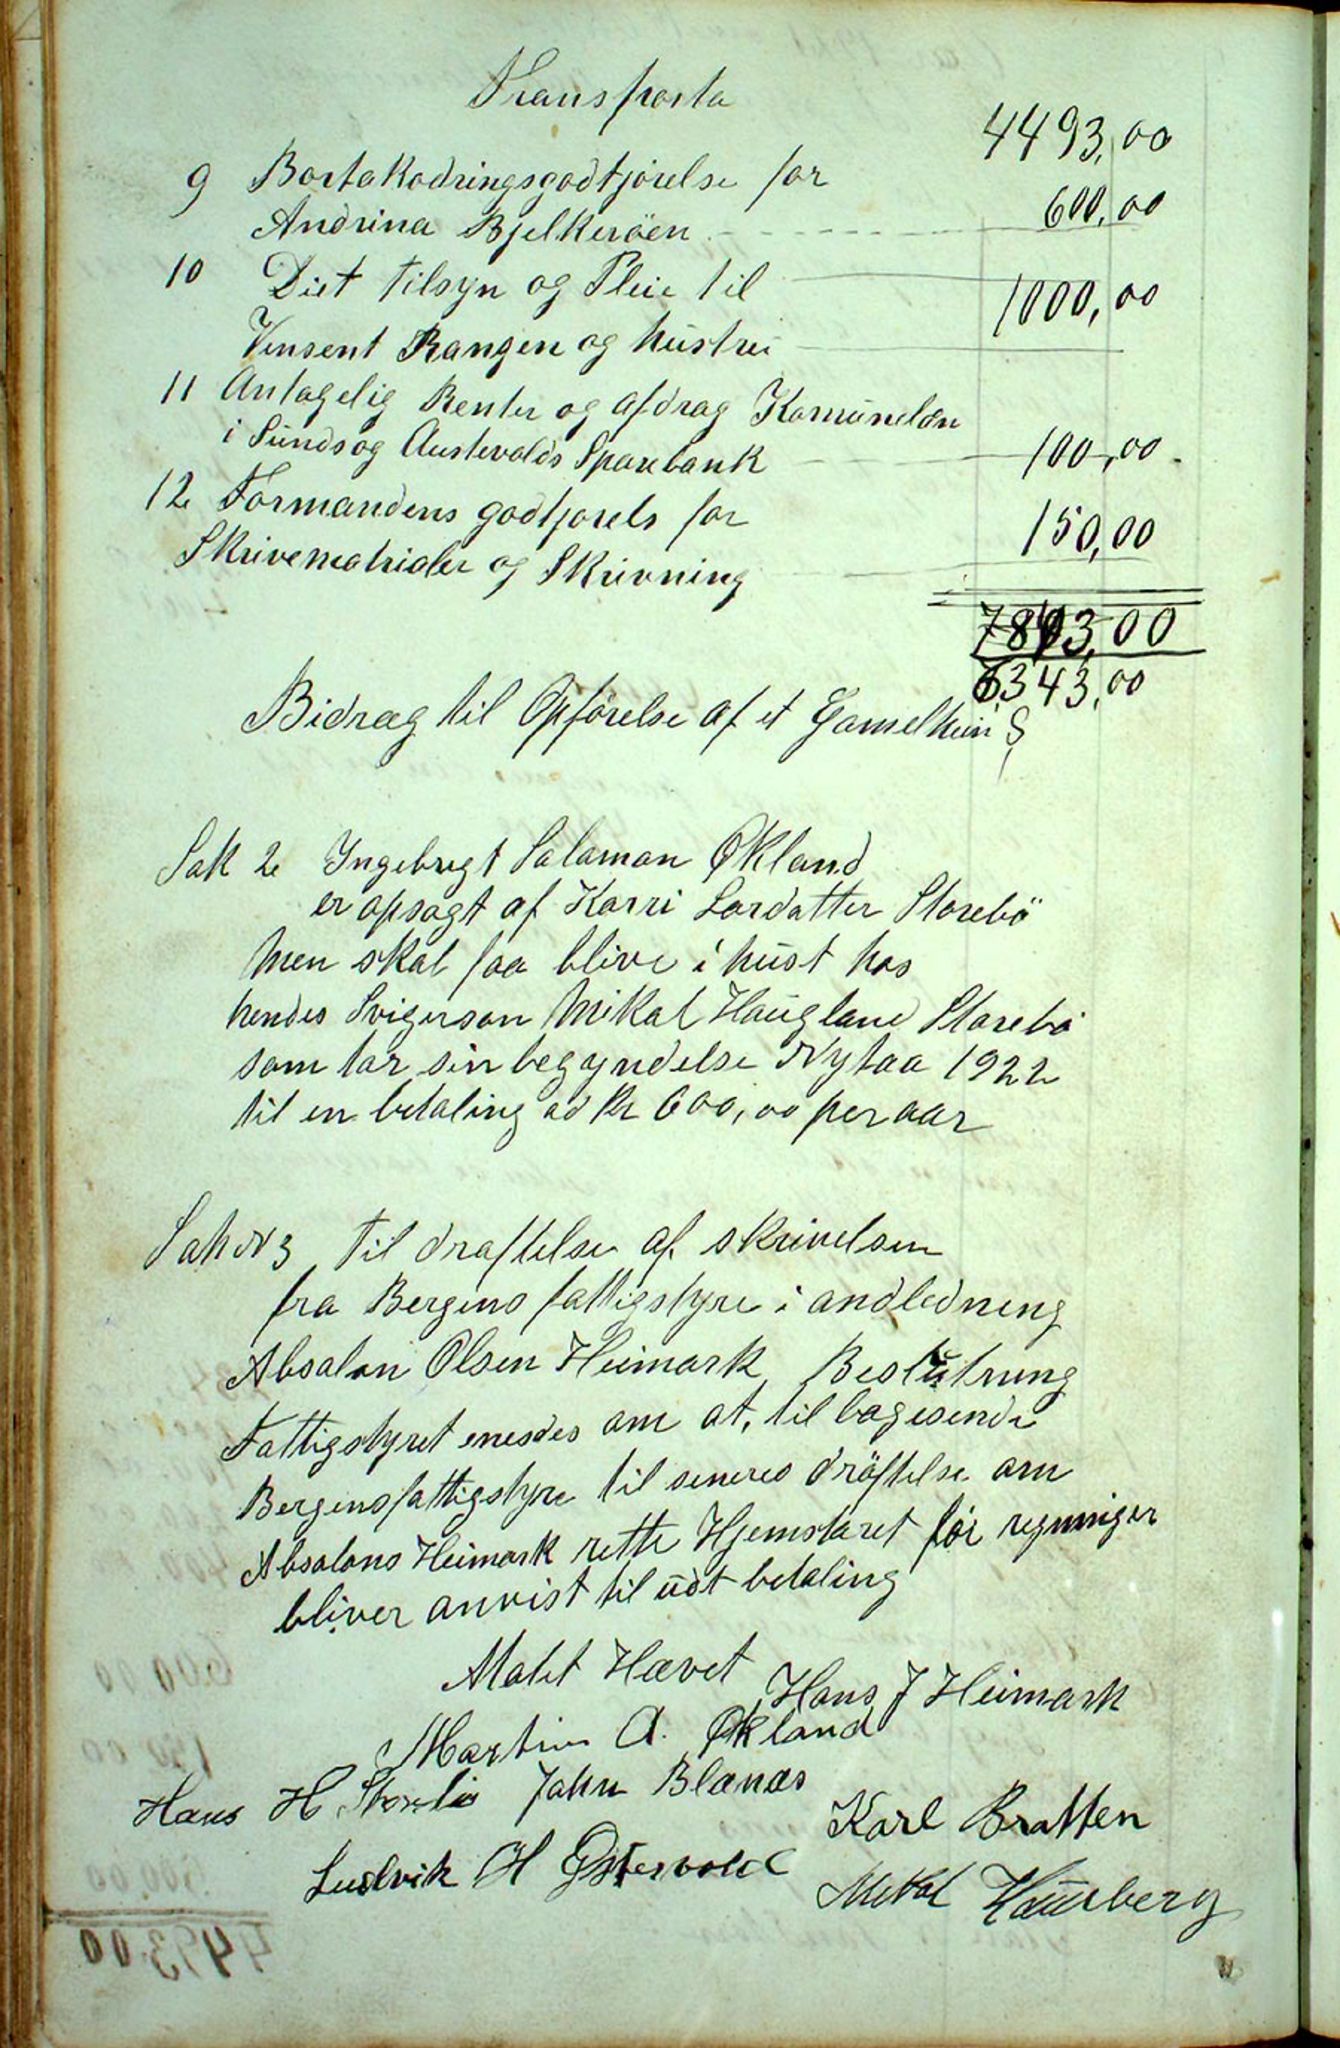 Transporta
4493,00
9 Bortakodringsgodtjørelse for
Andrina Bjelkeröen 600,00
10 Diet tilsyn og Pleie til
Vinsent Rangen og hustru 1000,00
11 Antagelig Renter og afdrag Komunelån
i Sunds og Austevolds Sparebank 100,00
12 Formandens godtjørels for
Skrivematrialer og Skrivning 150,00
7843,00
6343,00
Bidrag til Opførelse af et Gamelheim
Sak 2 Ingebrigt Salaman Økland
er opsagt af Karri Lardatter Storebö
men skal faa blive i hust hos
hendes Svigerson Mikal Haugland Storebø
som tar sin begyndelse Nytaa 1922
til en betaling ad Kr 600,00 per aar
Sak N 3 Til drøftelse af skrivelsen
fra Bergens fattigstyre i andledning
Absalon Olsen Heimark Beslutning
Fattigstyret enesdes om at, tilbagesende
Bergensfattigstyre til seneres dröftelse om
Absalons Heimark rette Hjemstaret før regninger
bliver anvist til udt betaling
Mabit Hævet Hans J Heimark
Martin A. Økland
Hans H John Blænæs
Karl Bratten
Ludvik H Østervold
Mikal Haukberg